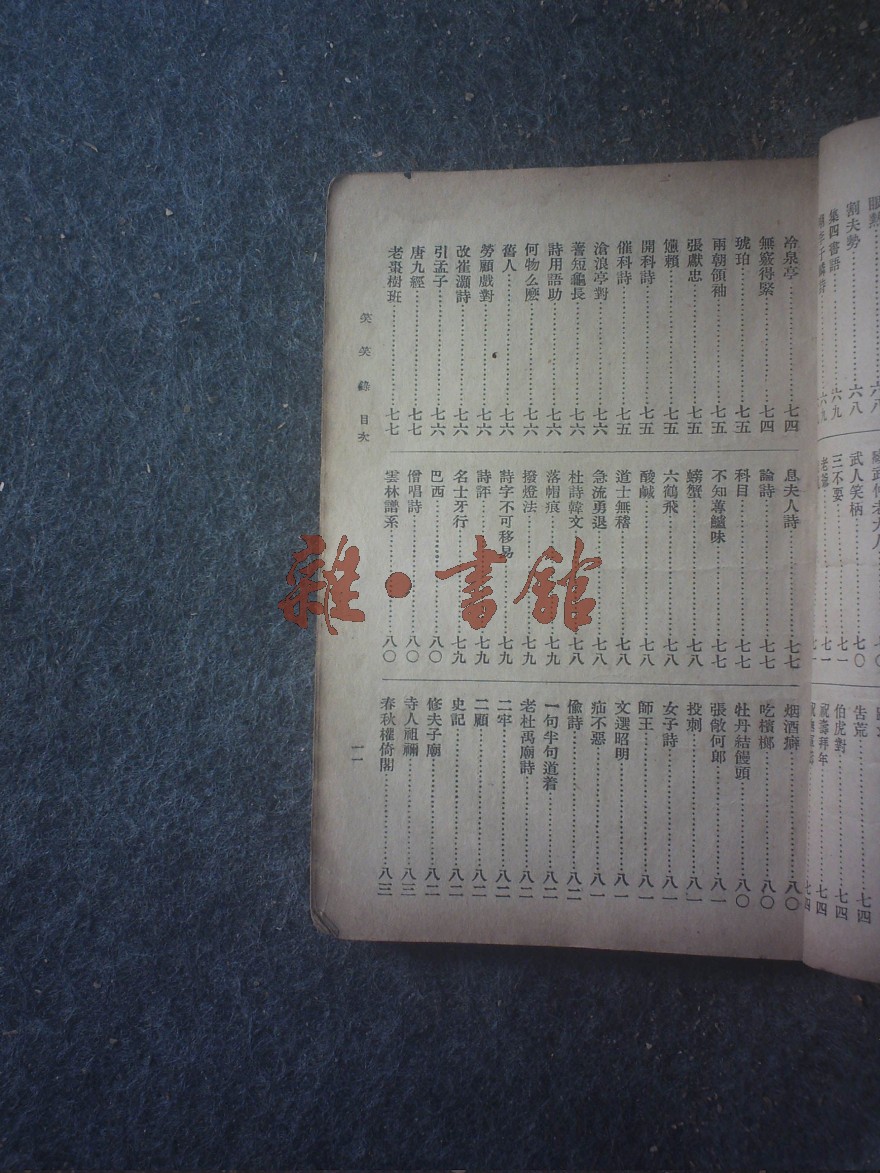 割夫勢……………六八
集四書語……………六九
武人笑柄……………七〇
三不要……………七一
告荒……………七四
伯虎對……………七四
祝壽拜年……………七四
冷泉亭……………七四
無竅得緊……………七四
琥珀……………七五
兩朝領袖……………七五
張獻忠……………七五
嬾賴……………七五
開科詩……………七五
催科詩……………七五
滄浪亭對……………七六
蓍短龜長……………七六
詩用語助……………七六
何物么麼……………七六
舊人……………七六
勞顧戲對……………七六
改崔灝詩……………七六
引孟子……………七六
唐九經……………七七
老棗樹班……………七七
息夫人詩……………七七
論詩……………七七
科目……………七七
不知蓴鱸味……………七七
螃蟹……………七八
六鶴飛……………七八
酸鹹……………七八
道士無稽……………七八
急流勇退……………七八
杜詩韓文……………七八
落帽痕……………七九
撥燈法……………七九
詩字不可移易……………七九
詩評……………七九
名士牙行……………七九
巴西……………八〇
僧唱詩……………八〇
雲林譜系……………八〇
烟酒癖……………八〇
吃檳榔……………八〇
牡丹結饅頭……………八〇
張敞何郎……………八一
投刺……………八一
女子詩……………八一
師王……………八一
文選昭明……………八一
疝不惡……………八一
偷詩……………八二
一句半句道着……………八二
老杜禹廟詩……………八二
二牢……………八二
二顧……………八二
史記……………八二
修夫子廟……………八二
寺人祖禰……………八三
春秋權倚閣……………八三
笑笑錄 目次
一一
雜·書館